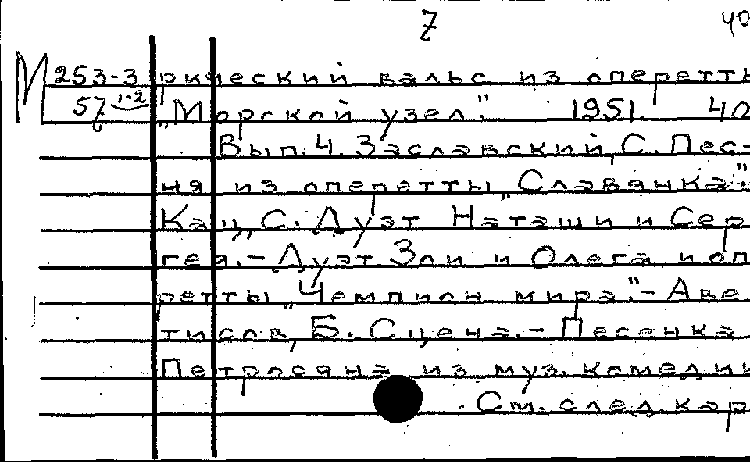 7 40
М 253-3 рический вальс из оперетты
57 1-2 „Морской узел". 1951. 40
Вып. 4. Заславский, С. Пес-
ня из оперетты „Славянка".
Кац, С. Дуэт Наташи и Сер
гея. - Дуэт Зои и Олега и оп
ретты „Чемпион мира". - Аве
тисов, Б. Сцена. - Песенка
Петросяна из муз. комедии
См. след. кар